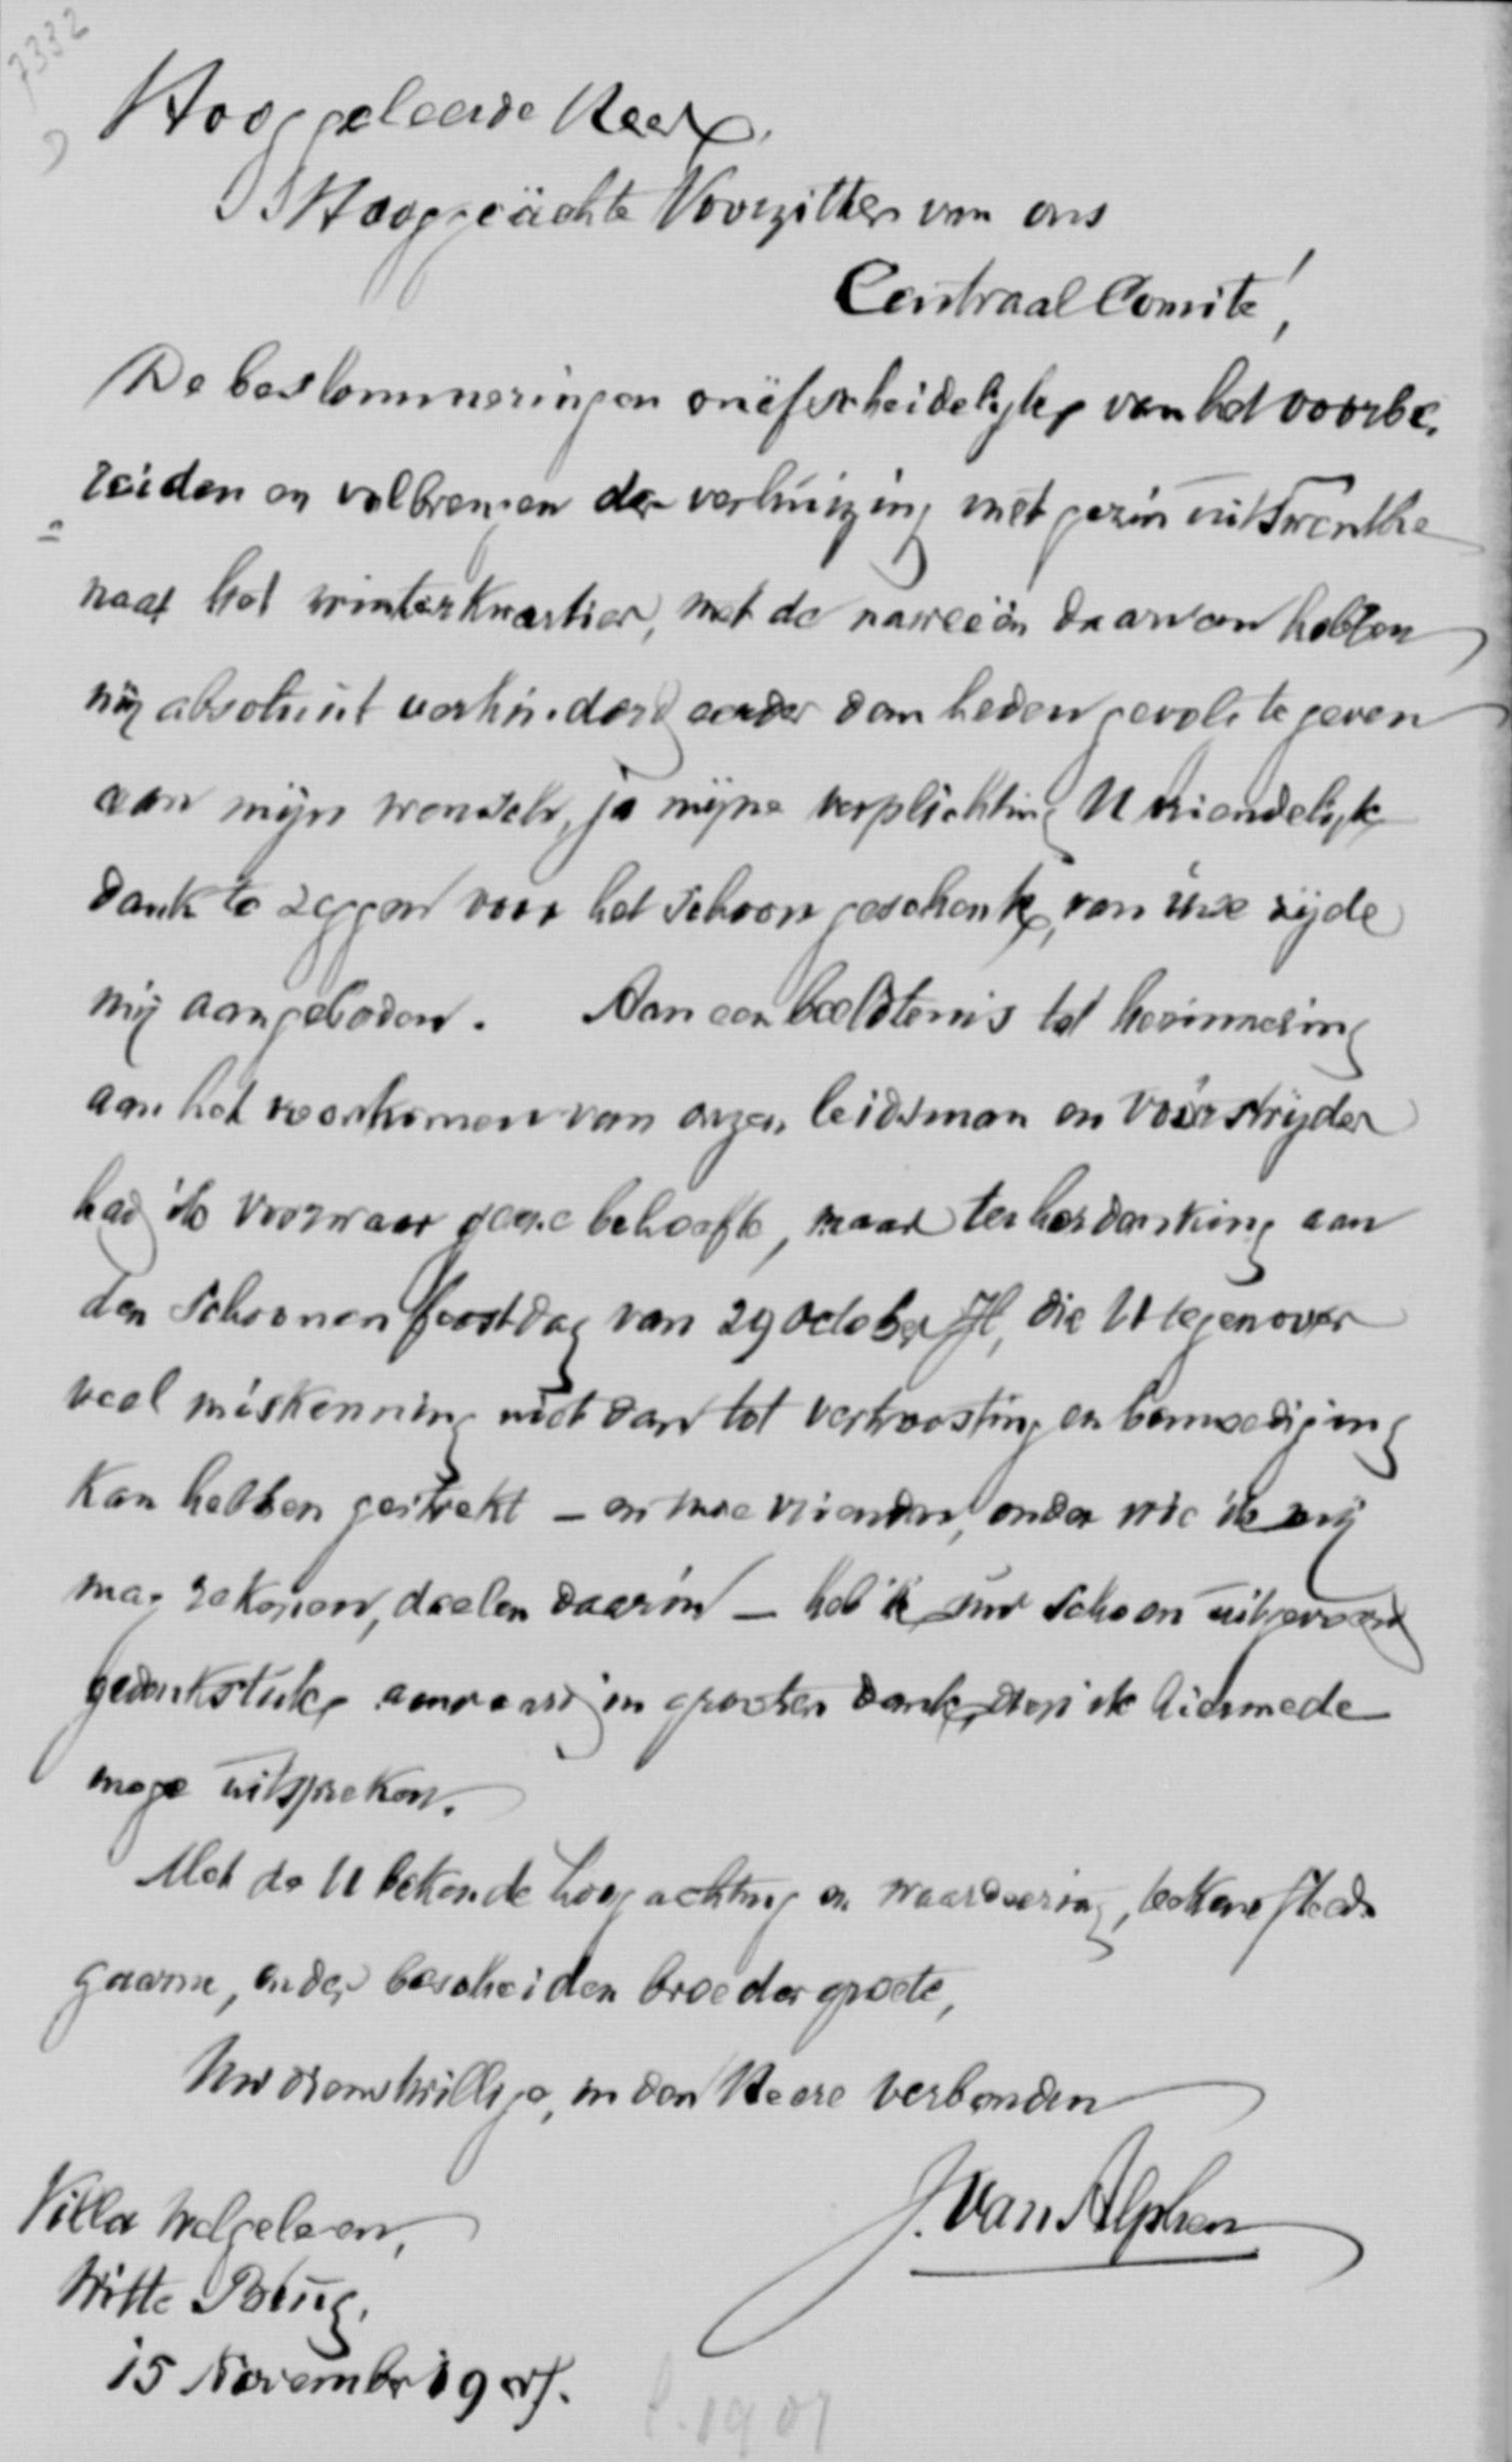 7332
Hooggeleerde Heer,
Hooggeächte Voorzitter van ons
Centraal Comité!
De beslommeringen onäfscheidelijk van het voorbe-
reiden en volbrengen der verhuizing met gezin uit Twenthe
naar het winterkwartier, met de naweeën daarvan hebben
mij absoluut verhinderd eerder dan heden gevolg te geven
aan mijn wensch, ja mijne verplichting U vriendelijk
dank te zeggen voor het schoon geschenk, van uwe zijde
mij aangeboden. Aan een beeldtenis tot herinnering
aan het voorkomen van onzen leidsman en vóórstrijder
had ik voorwaar geene behoefte, maar ter herdenking aan
den schoonen feestdag van 29 October Jl, die U tegenover
veel miskenning niet dan tot vertroosting en bemoediging
kan hebben gestrekt – en uwe vrienden, onder wie ik mij
mag rekenen, deelen daarin – heb ik uw schoon uitgevoerd
gedenkstuk aanvaard in grooten dank, dien ik hiermede
moge uitspreken.
Met de U bekende hoogachting en waardeering, teekene steeds
gaarne, onder bescheiden broedergroete,
Uw dienstwillige, in den Heere verbonden
J. van Alphen
Villa Welgelegen,
Witte Brug.
15 November 1907.
l. 1907